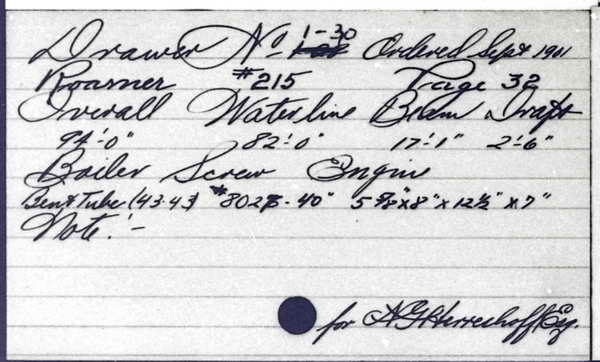 Drawer No 1-30 Ordered Sept 1901
Roamer #215 Page 32
Overall Waterline Beam Draft
94'-0" 82'-0" 17'-1" 2'-6"
Boiler Screw Engine
Bent Tube (43-43) #8028-40" 5 5/8" x 8" x 12 1/2" x 7"
Note:-
for N G Herreshoff Esq.